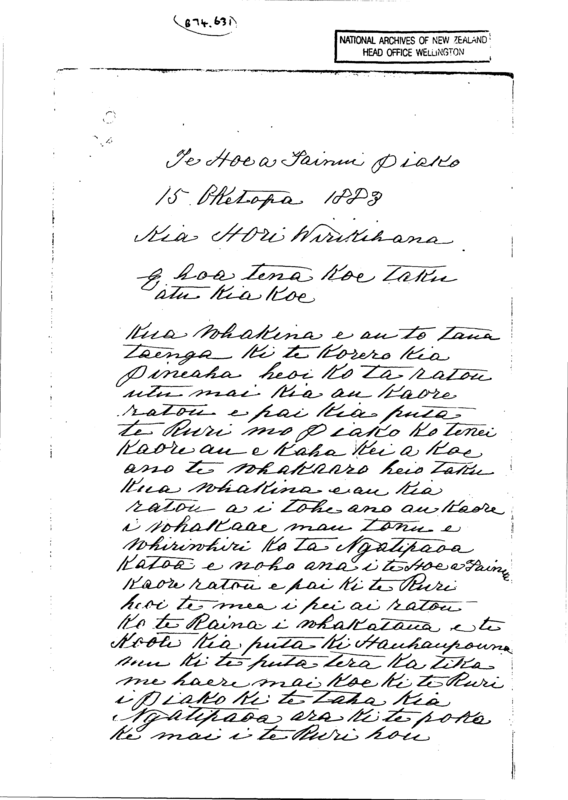 (B74.631)
NATIONAL ARCHIVES OF NEW ZEALAND
HEAD OFFICE WELLINGTON
Te Hoe a Tainui Piako
15 Oketopa 1883
Kia Hori Wirikihana
E hoa tena koe taku
atu kia koe
Kua whakina e au to taua
taenga ki te korero kia
Pineaha heoi ko ta ratou
utu mai kia au kaore
ratou e pai kia puta
te Ruri mo Piako ko tenei
kaore au e kaha kei a koe
ano te whakaaro heio taku
kua whakina e au kia
ratou a i tohe ano au kaore
i whakaae mau tonu e
whiriwhiri ko ta Ngatipaoa
katoa e noho ana i te Hoe a Tainui
kaore ratou e pai ki te Ruri
heoi te mea i pei ai ratou
ko te Raina i whakataua e te
Kooti kia puta ki Hauhaupounamu
ki te puta tera ka tika
me haere mai koe ki te Ruri
i Piako ki te taha kia
Ngatipaoa ara ki te poka
ke mai i te Ruri hou